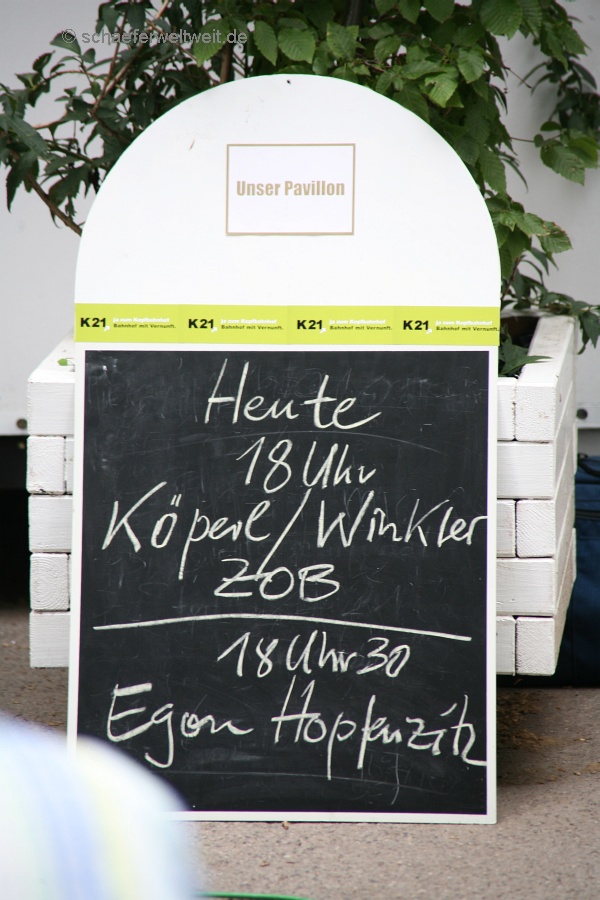 © schaeferweltweit.de
Unser Pavillon
K21 Ja zum Kopfbahnhof Bahnhof mit Vernunft. K21 Ja zum Kopfbahnhof Bahnhof mit Vernunft. K21 Ja zum Kopfbahnhof Bahnhof mit Vernunft. K21 Ja zum Kopfbahnhof Bahnhof mit Vernunft.
Heute
18 Uhr
Köperl/Winkler
ZOB
18 Uhr 30
Egon Hopfenzitz